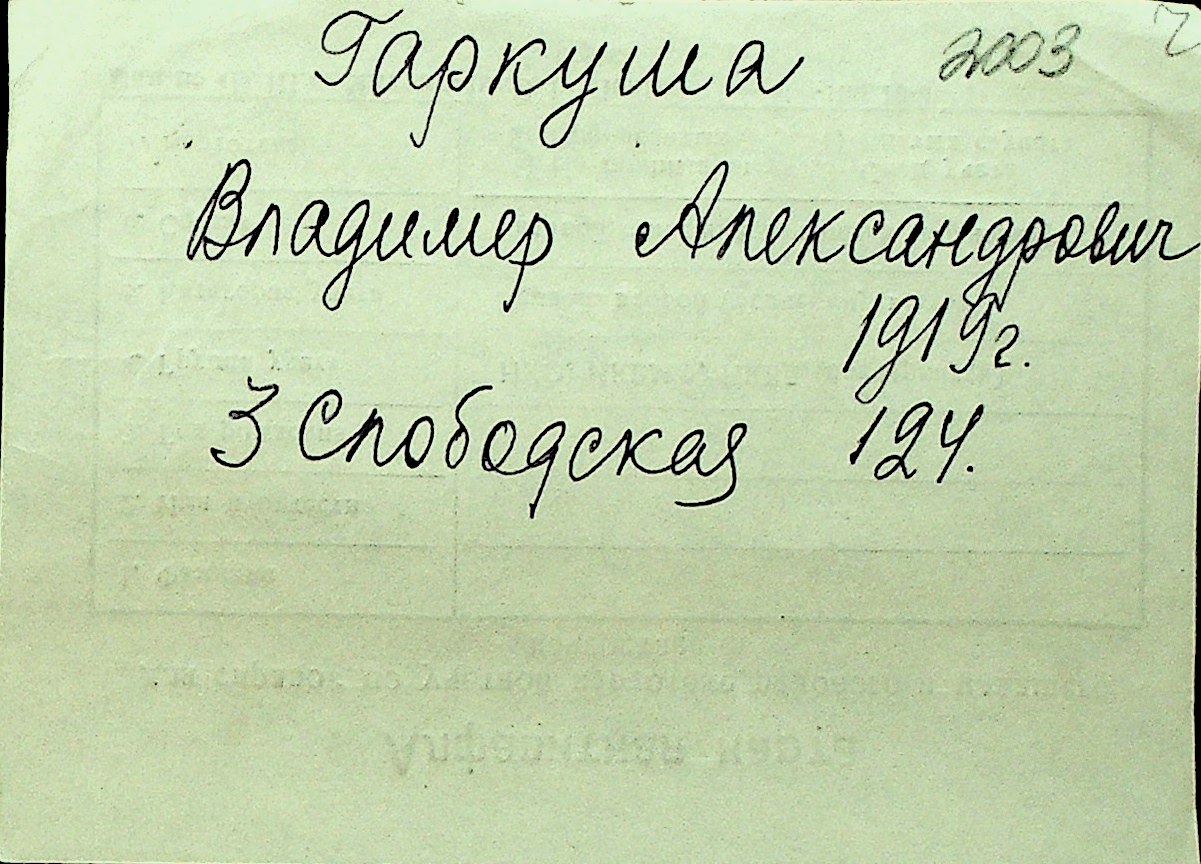 Гаркуша 2003
Владимер Александрович
1919г.
3 Слободская 124.